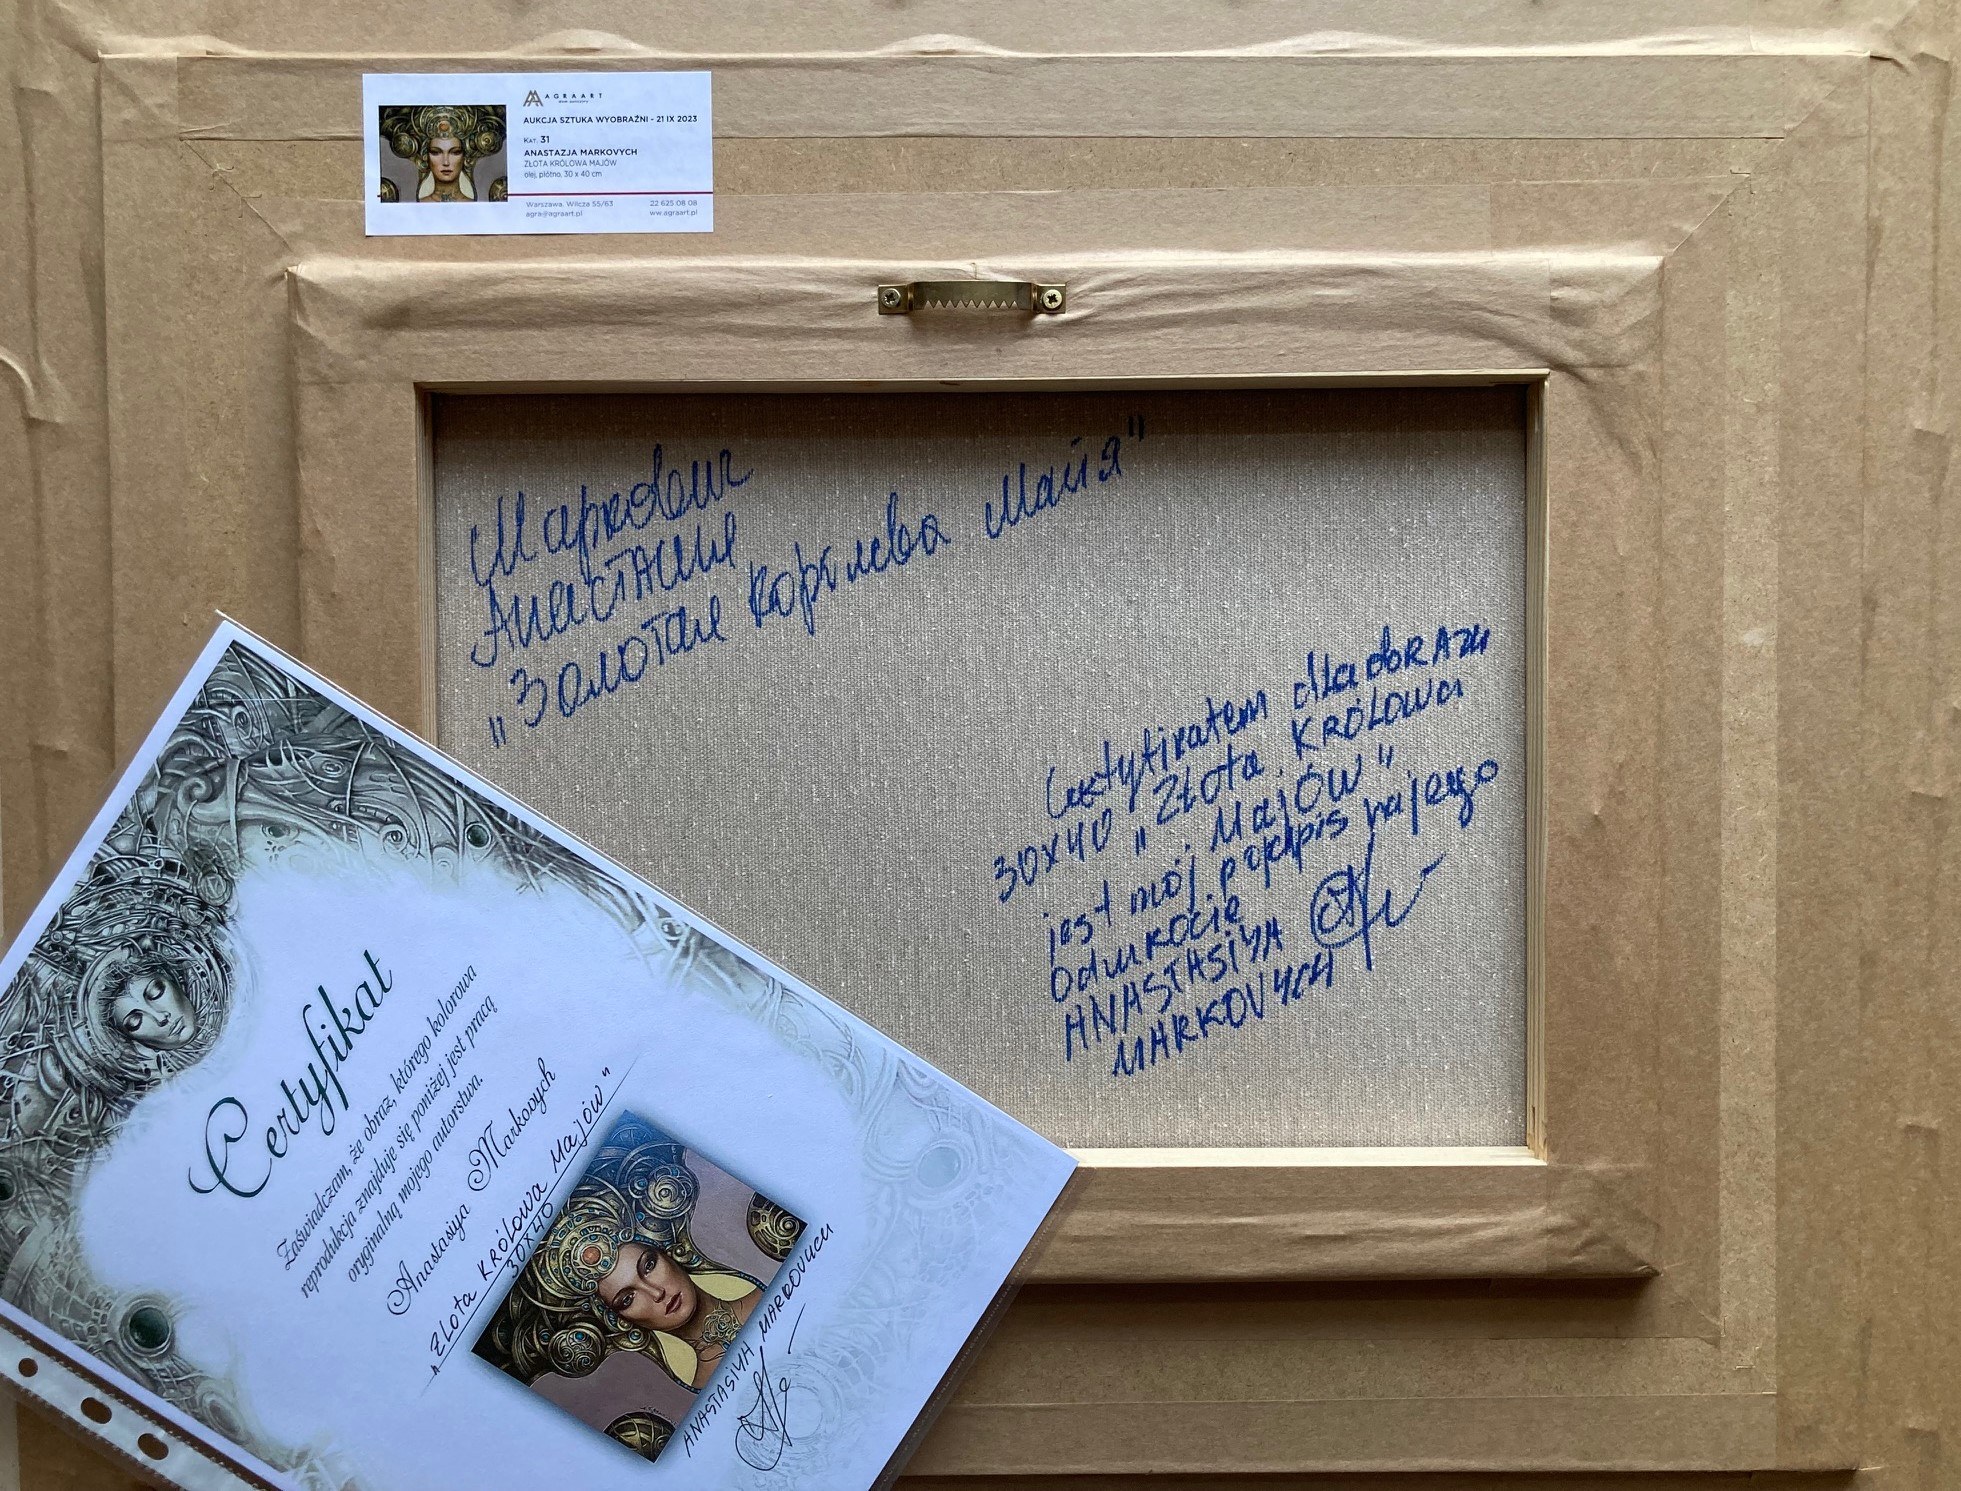 AGRAART
dom aukcyjny
AUKCJA SZTUKA WYOBRAŹNI - 21 IX 2023
Kat. 31
ANASTAZJA MARKOVYCH
ZŁOTA KRÓLOWA MAJÓW
olej, płótno, 30 x 40 cm
Warszawa, Wilcza 55/63 22 625 08 08
agra@agraart.pl ww.agraart.pl
Маркович
Анастасия
„Золотая королева Майя"
Certyfikatem dla obrazu
30x40 „Złota KRÓLOWA
MAJÓW"
jest mój podpis na jego
odwrocie
ANASTASIYA
MARKOVYCH
Certyfikat
Zaświadczam, że obraz, którego kolorowa
reprodukcja znajduje się poniżej jest pracą
oryginalną mojego autorstwa.
Anastasiya Markovych
„Złota KRÓLOWA MAJÓW"
30x40
ANASTASIYA MARKOVYCH